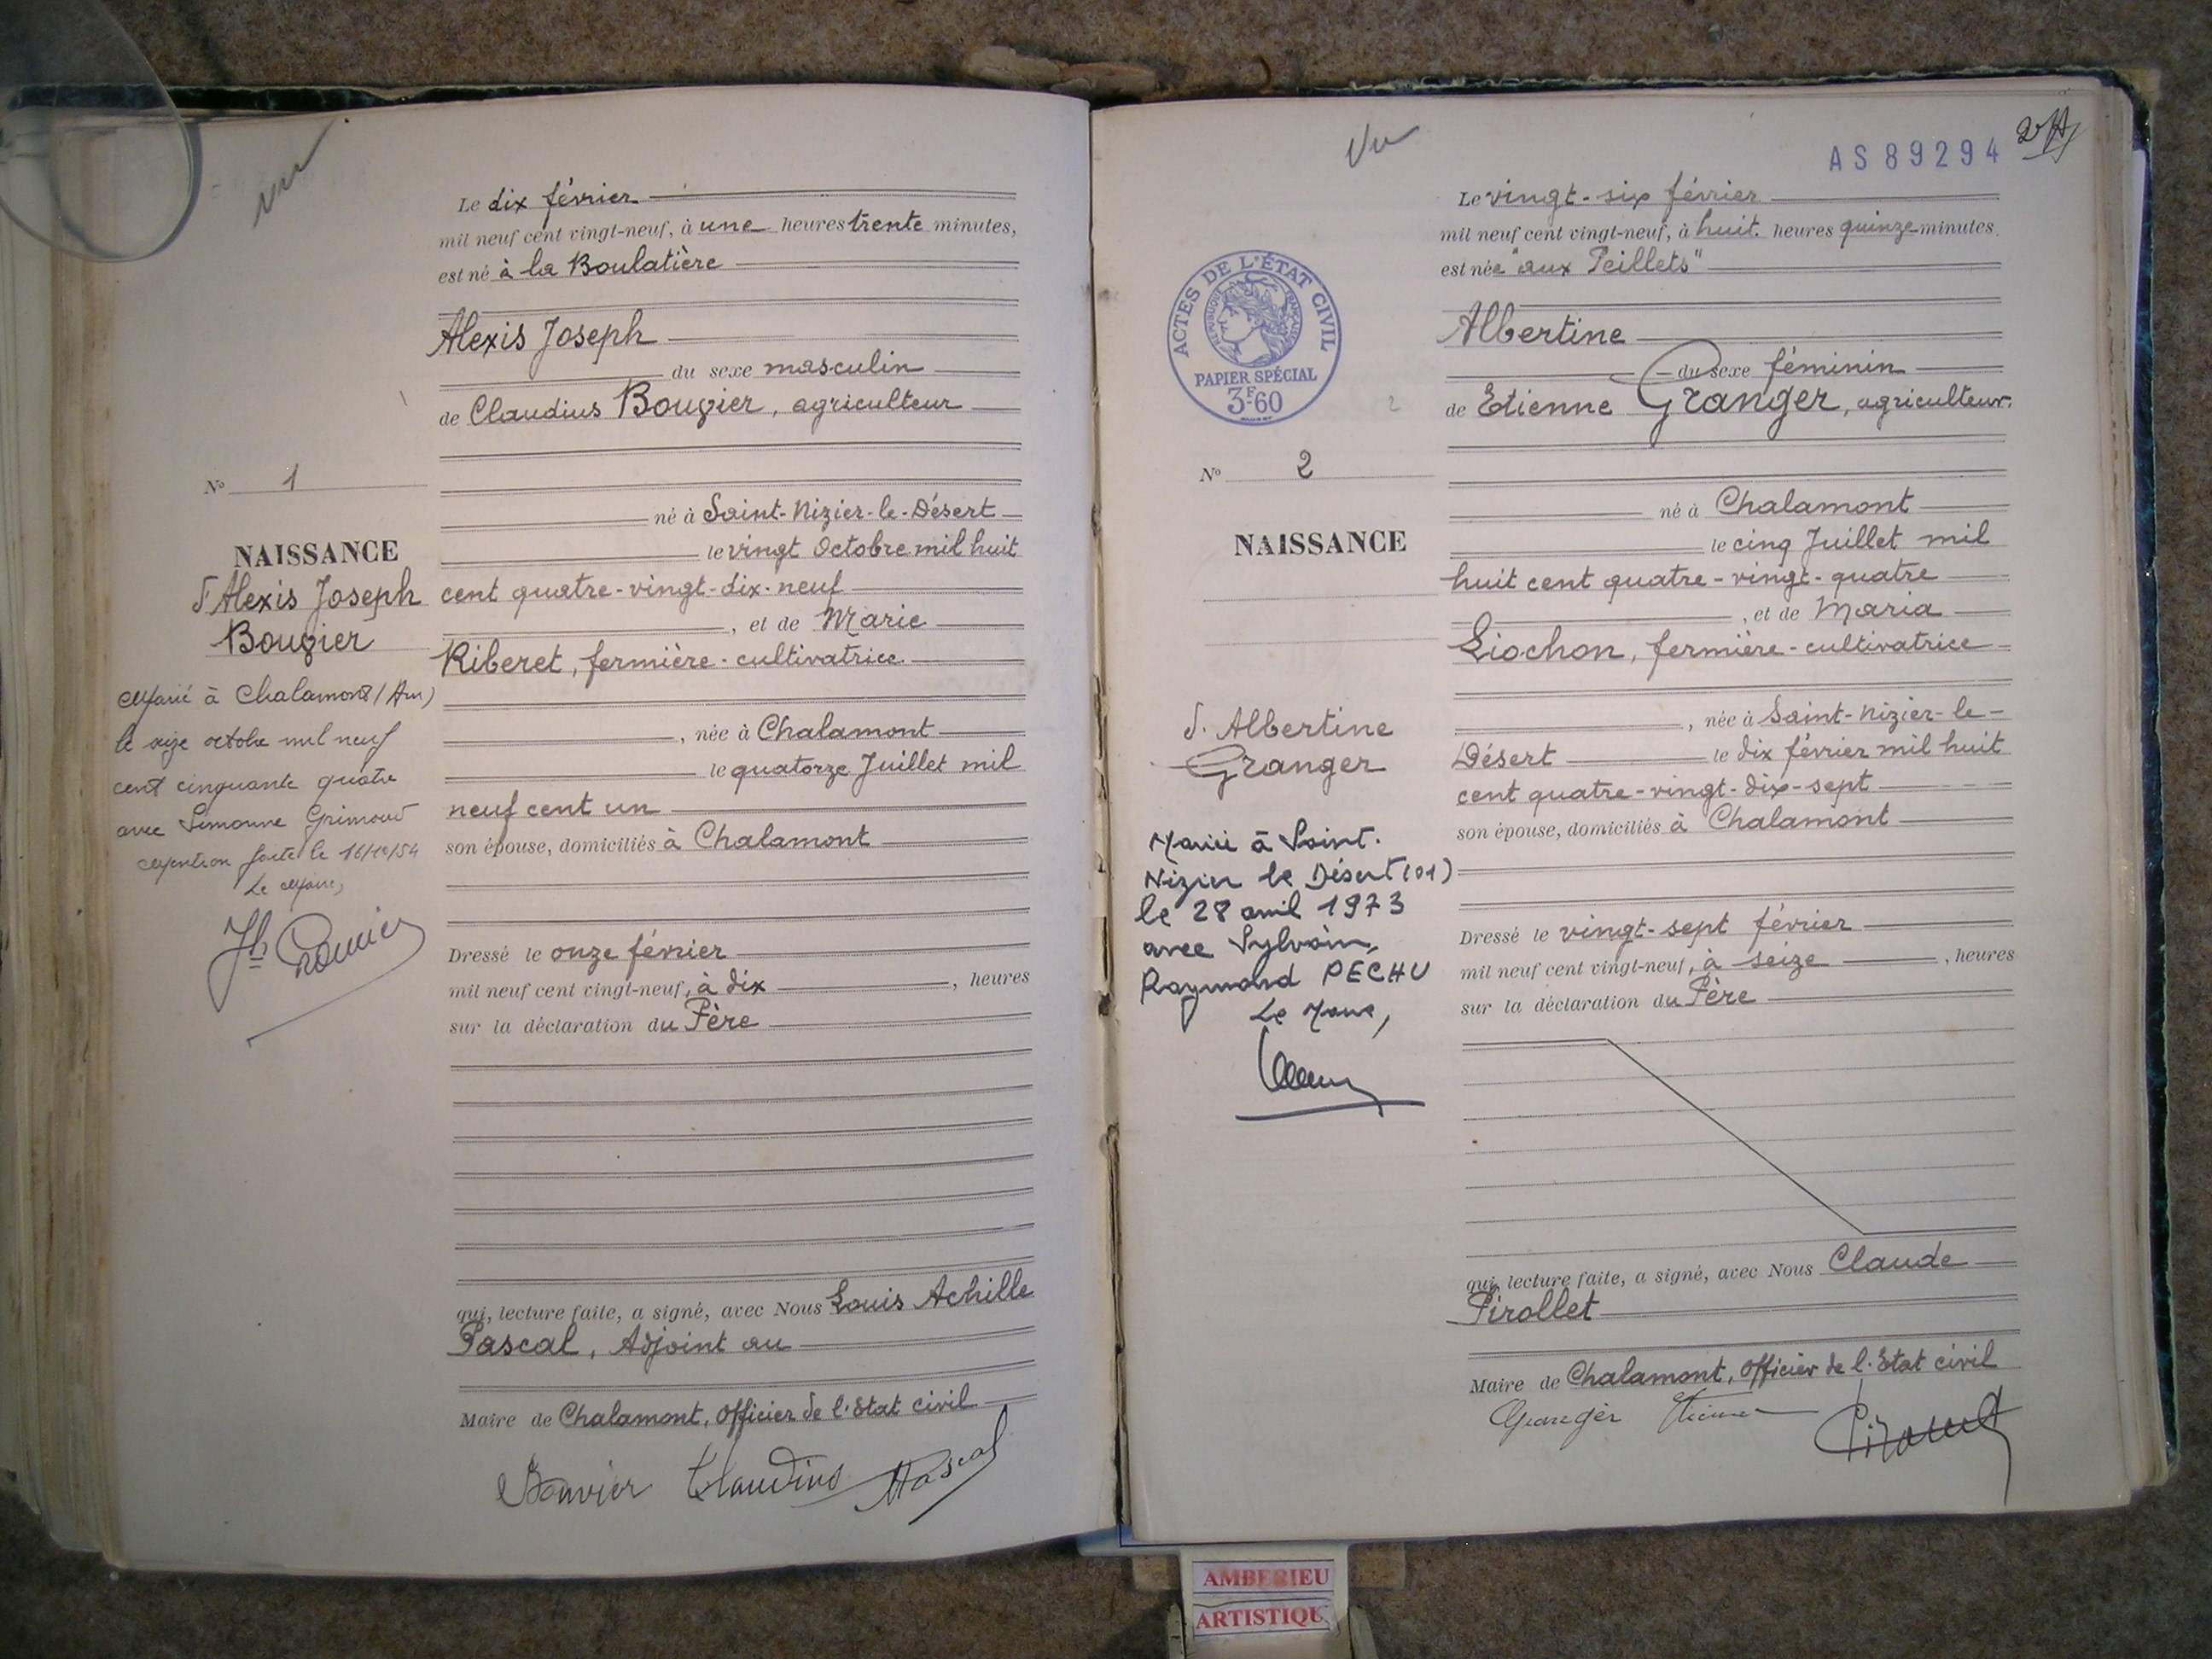 vu
Le dix février
mil neuf cent vingt-neuf, à une heures trente minutes,
est né à la Boulatière
Alexis Joseph
du sexe masculin
de Claudius Bouvier, agriculteur
né à Saint-Nizier-le-Désert
le vingt Octobre mil huit
cent quatre-vingt-dix-neuf
, et de Marie
Riberet, fermière-cultivatrice
, née à Chalamont
le quatorze Juillet mil
neuf cent un
son épouse, domiciliés à Chalamont
Dressé le onze février
mil neuf cent vingt-neuf, à dix , heures
sur la déclaration du Père
qui, lecture faite, a signé, avec Nous Louis Achille
Pascal, Adjoint au
Maire de Chalamont, Officier de l'Etat civil
Bouvier Claudius Pascal
N° 1
NAISSANCE
d'Alexis Joseph
Bouvier
Marié à Chalamont (Ain)
le seize octobre mil neuf
cent cinquante quatre
avec Simonne
Mention faite le 16/10/54
Le Maire,
Vu
AS 89294
ACTES DE L'ÉTAT CIVIL
RÉPUBLIQUE FRANÇAISE
PAPIER SPÉCIAL
3F.60
N° 2
NAISSANCE
d'Albertine
Granger
Mariée à Saint-
Nizier le Désert (01)
le 28 avril 1973
avec Sylvain,
Raymond PECHU
Le Maire,
Le vingt-six février
mil neuf cent vingt-neuf, à huit heures quinze minutes,
est née "aux Peillets"
Albertine
du sexe féminin
de Etienne Granger, agriculteur
né à Chalamont
le cinq Juillet mil
huit cent quatre-vingt-quatre
, et de Maria
Liochon, fermière-cultivatrice
, née à Saint-Nizier-le-
Désert le dix février mil huit
cent quatre-vingt-dix-sept
son épouse, domiciliés à Chalamont
Dressé le vingt-sept février
mil neuf cent vingt-neuf, à seize , heures
sur la déclaration du Père
qui, lecture faite, a signé, avec Nous Claude
Pirollet
Maire de Chalamont, Officier de l'Etat civil
Granger Etienne Pirollet
AMBERIEU
ARTISTIQU